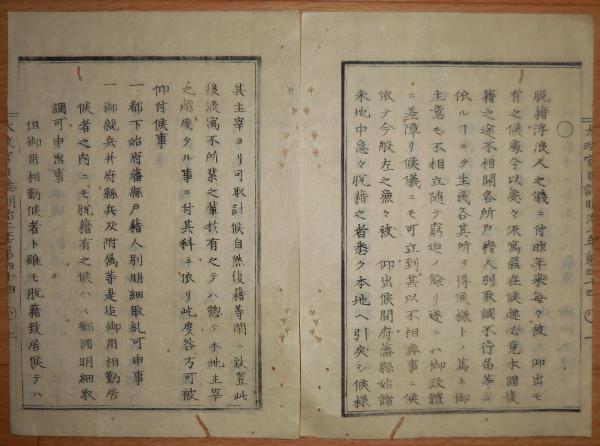 太政官日誌明治二年第四十四
〇
脱籍浮浪人之儀ニ付昨年来毎々被 仰出モ
有之候處今以處々流寓罷在候趣必竟本國復
籍之途不相開各所戸籍人別取調不行届等ニ
依ルコニテ生民各其所ヲ得候様トノ篤キ御
主意モ不相立随テ窮迫ノ餘リ遂ニハ御政體
ニ差障リ候儀ニモ可立到甚以不相濟事ニ候
依テ今般左之廉々被 仰出候間府藩縣始諸
采地中急々脱籍之者悉ク本地ヘ引戻シ候様
其主宰ヨリ可取計候自然復籍等閑ニ致置此
後流寓不所業之輩於有之テハ惣テ本地主宰
之越度タル事ニ付其科ニ依リ屹度咎方可被
仰付候事
一都下始府藩縣戸籍人別明細取糺可申事
一御親兵并府縣兵及附属等是迄御用相勤居
候者之内ニモ脱籍有之候ハヽ鄕國明細取
調可申出事
但御用相勤候者ト雖モ脱籍致居候テハ
太政官日誌明治二年第四十四